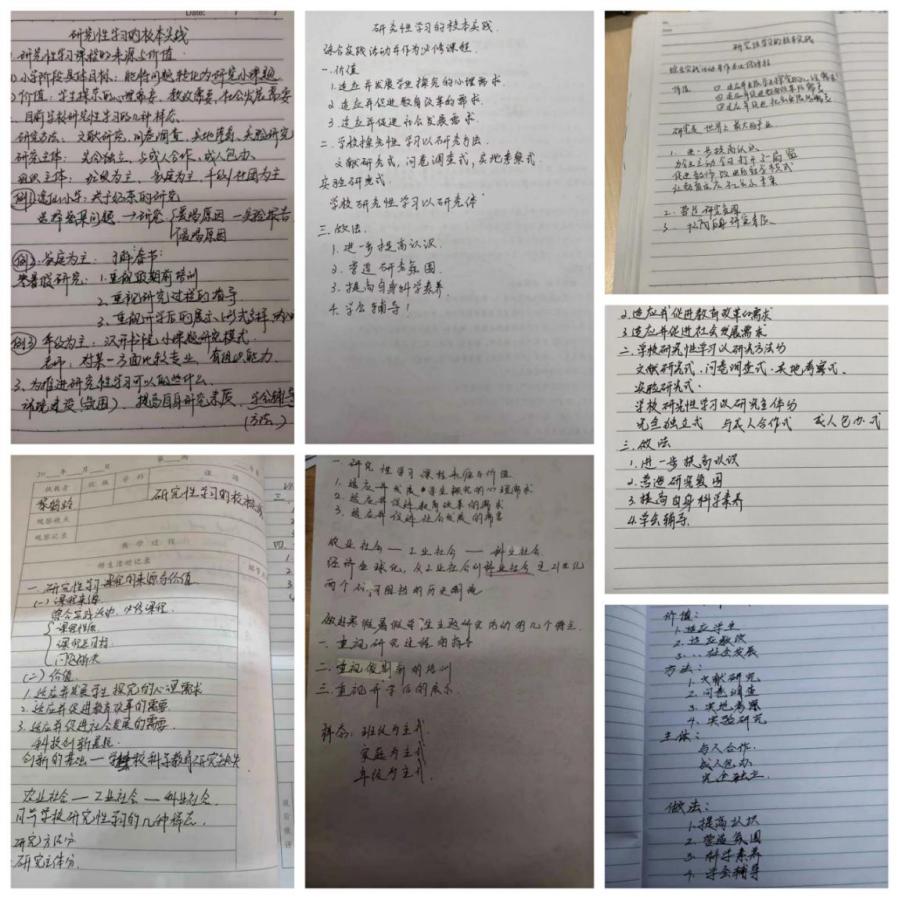 研究性学习的校本实践
1.研究性学习课程的来源与价值
小学阶段具体目标：能将问题转化为研究小课题
价值：学生探求的心理需要、教改需要、社会发展需要
目前学校研究性学习的几种样态
研究方法：文献研究、问卷调查、实地考察、实验研究
研究主体：完全独立、与成人合作、成人包办
组织主体：班级为主、家庭为主、年级/社团为主
例1
怎样 问题→研究
原因—实验报告
原因
例2.家庭为主：了解春节
寒暑假研究：1.重视放假前培训
2.重视研究过程的指导
3.重视开学后的展示(形式多样
例3 年级为主：汉开书院小课题研究模式
老师：对某一方面比较专业，有组织能力
3.为推进研究性学习可以做些什么
环境建设(氛围)、提高自身研究素质、学会辅导
(方法
研究性学习的校本实践
综合实践活动 作为必修课程.
一.价值
1.适应并发展学生探究的心理需求.
2.适应并促进教育改革的需求.
3.适应并促进社会发展需求.
二.学校探究性学习以研考方法.
文献研究式，问卷调查式，实地考察式
实验研究式.
学校研究性学习以研究体
三.做法.
1.进一步提高认识.
3.营造研考氛围.
3.提高自身科学素养
4.学会辅导！
研究性学习的校本实践
综合实践活动 作为必修课程
价值
1.进一步提高认识
2.营造研究氛围
3.
2.适应并促进教育改革的需求
3.适应并促进社会发展需求
二.学校研究性学习以研究方法分
文献研究式.问卷调查式.实地考察式.
实验研究式.
学校研究性学习以研究主体分
完全独立式 与成人合作式 成人包办式
三.做法
1.进一步提高认识
2.营造研究氛围
3.提高自身科学素养
4.学会辅导.
20 年 月 日 第 周
执教者 班级 学科 课题
研究性学习的校本实
观察视点
观察记录
教学过程
师生活动记录
一.研究性学习课程的来源与价值
(一)课程来源
综合实践活动.必修课程
课程性质
课程总目标
(二)价值
1.适应并发展学生探究的心理需求
2.适应并促进教育改革的需要
3.适应并促进社会发展的需要.
科技创新
创新的基础—学校科学教育研究
农业社会—工业社会—科业社会.
目前学校研究性学习的几种样态.
研究方法分
研究主体分.
一.研究性学习课程来源与价值
1.适应并发展学生探究的心理需求
2.适应并促进教育改革的需求
3.适应并促进社会发展的需要
农业社会—工业社会—科业社会.
经济全球化，从工业社会到科业社会是21世纪
两个 不可阻挡的历史潮流
做好寒假暑假学生主题研究活动的几个特点.
一.重视研究过程的指导
二.重视假期前的培训
三.重视开学后的展示.
样态：班级为主式
家庭为主式
年级为主式.
价值：
1.适应学生
2.适应教改
3.…社会发展
方法：
1.文献研究
2.问卷调查
3.实地考察
4.实验研究
主体：
与人合作.
成人包办
完全独立.
做法：
1.提高认识
2.营造氛围
3.科学素养
4.学会辅导